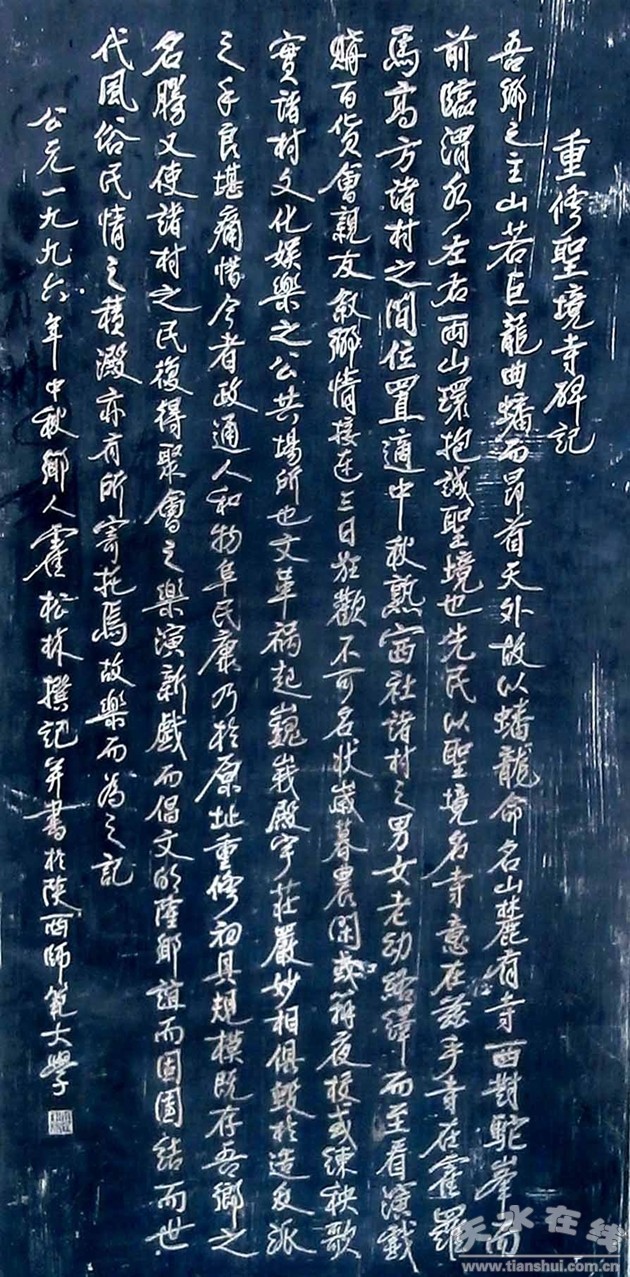 重修聖境寺碑記
吾鄉之主山若巨龍曲蟠而昂首天外故以蟠龍命名山麓有寺西對駝峯南
前臨渭水左右兩山環抱誠聖境也先民以聖境名寺意在兹乎寺在霍羅
馬高方諸村之間位置適中秋熟賽社諸村之男女老幼絡繹而至看演戲
購百貨會親友敘鄉情接連三日狂歡不可名狀歲暮農閑或辦夜校或練秧歌
實諸村文化娛樂之公共場所也文革禍起巍峩殿宇莊嚴妙相俱毀於造反派
之手良堪痛惜今者政通人和物阜民康乃於原址重修初具規模既存吾鄉之
名勝又使諸村之民復得聚會之樂演新戲而倡文明隆鄉誼而固團結而世
代風俗民情之積澱亦有所寄托焉故樂而為之記
公元一九九六年中秋鄉人霍松林撰記并書於陝西師範大學
天水在线
www.tianshui.com.cn